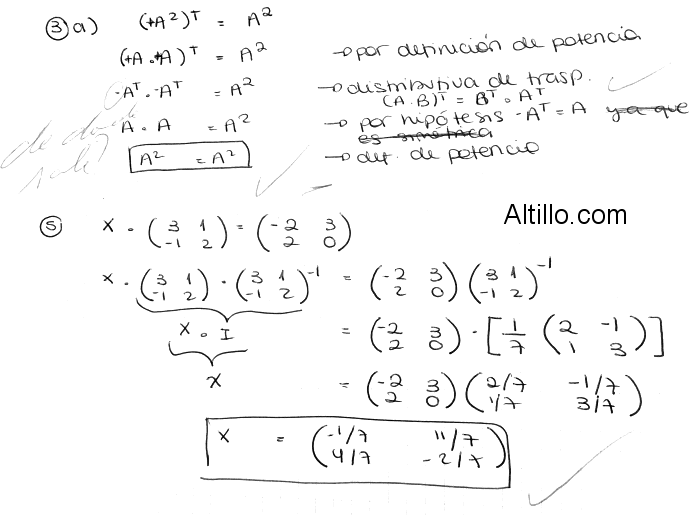 ③ a) (+A²)ᵀ = A²
(+A.+A)ᵀ = A² → por definición de potencia
-Aᵀ.-Aᵀ = A² → distributiva de trasp.
(A.B)ᵀ = Bᵀ.Aᵀ
A . A = A² → por hipótesis -Aᵀ = A ya que
es simétrica
A² = A² → def. de potencia
de donde
sale?
Altillo.com
⑤ X . (3 1 / -1 2) = (-2 3 / 2 0)
X . (3 1 / -1 2) . (3 1 / -1 2)⁻¹ = (-2 3 / 2 0) (3 1 / -1 2)⁻¹
X . I = (-2 3 / 2 0) . [1/7 (2 -1 / 1 3)]
X = (-2 3 / 2 0) (2/7 -1/7 / 1/7 3/7)
X = (-1/7 11/7 / 4/7 -2/7)